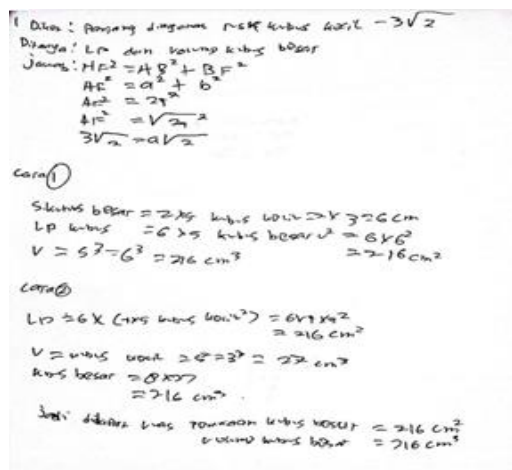 1 Diket : Panjang diagonal sisi kubus kecil = 3√2
Ditanya : LP dan volume kubus besar
Jawab : AF² = AB² + BF²
AF² = a² + b²
AF² = 2a²
AF² = √2a²
3√2 = a√2
cara ①
S kubus besar = 2 x s kubus kecil = 2 x 3 = 6 cm
Lp kubus = 6 x s kubus besar² = 6 x 6²
V = s³ = 6³ = 216 cm³ = 216 cm²
cara ②
Lp = 6 x (4 x s kubus kecil²)
= 216 cm²
V = kubus kecil = s³ = 3³ = 27 cm³
kubus besar = 8 x 27
= 216 cm³.
Jadi luas kubus besar = 216 cm²
volume kubus besar = 216 cm³